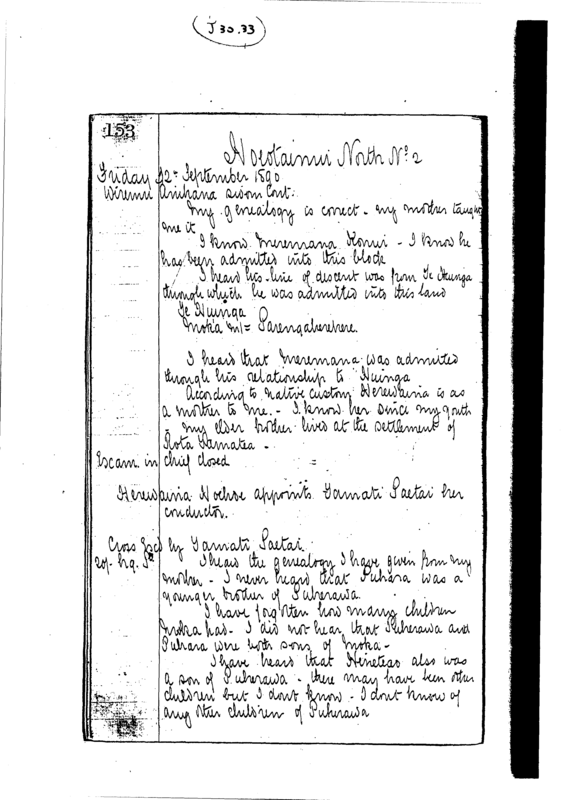 J 30.33
153
Hoeotainui North No 2
Friday 12th September 1890
Wiremu Anihana sworn Cont.
My genealogy is correct - my mother taught
me it
I know Meremana Konui - I know he
has been admitted into this block
I heard his line of descent was from Te Huinga
through which he was admitted into this land
Te Huinga
Moka m/= Parengaherehere.
I heard that Meremana was admitted
through his relationship to Huinga
According to native custom Herewaina is as
a mother to me. - I know her since my youth
- my elder brother lived at the settlement of
Rota
Exam. in chief closed =
Herewaina appoints Hamati Paetai her
conductor.
Cross Exd by Hamati Paetai.
I heard the genealogy I have given from my
mother - I never heard that Puhara was a
younger brother of Puherawa.
I have forgotten how many children
Moka had - I did not hear that Puherawa and
Puhara were both sons of Moka -
I have heard that also was
a son of Puherawa - there may have been other
children but I dont know - I dont know of
any other children of Puherawa